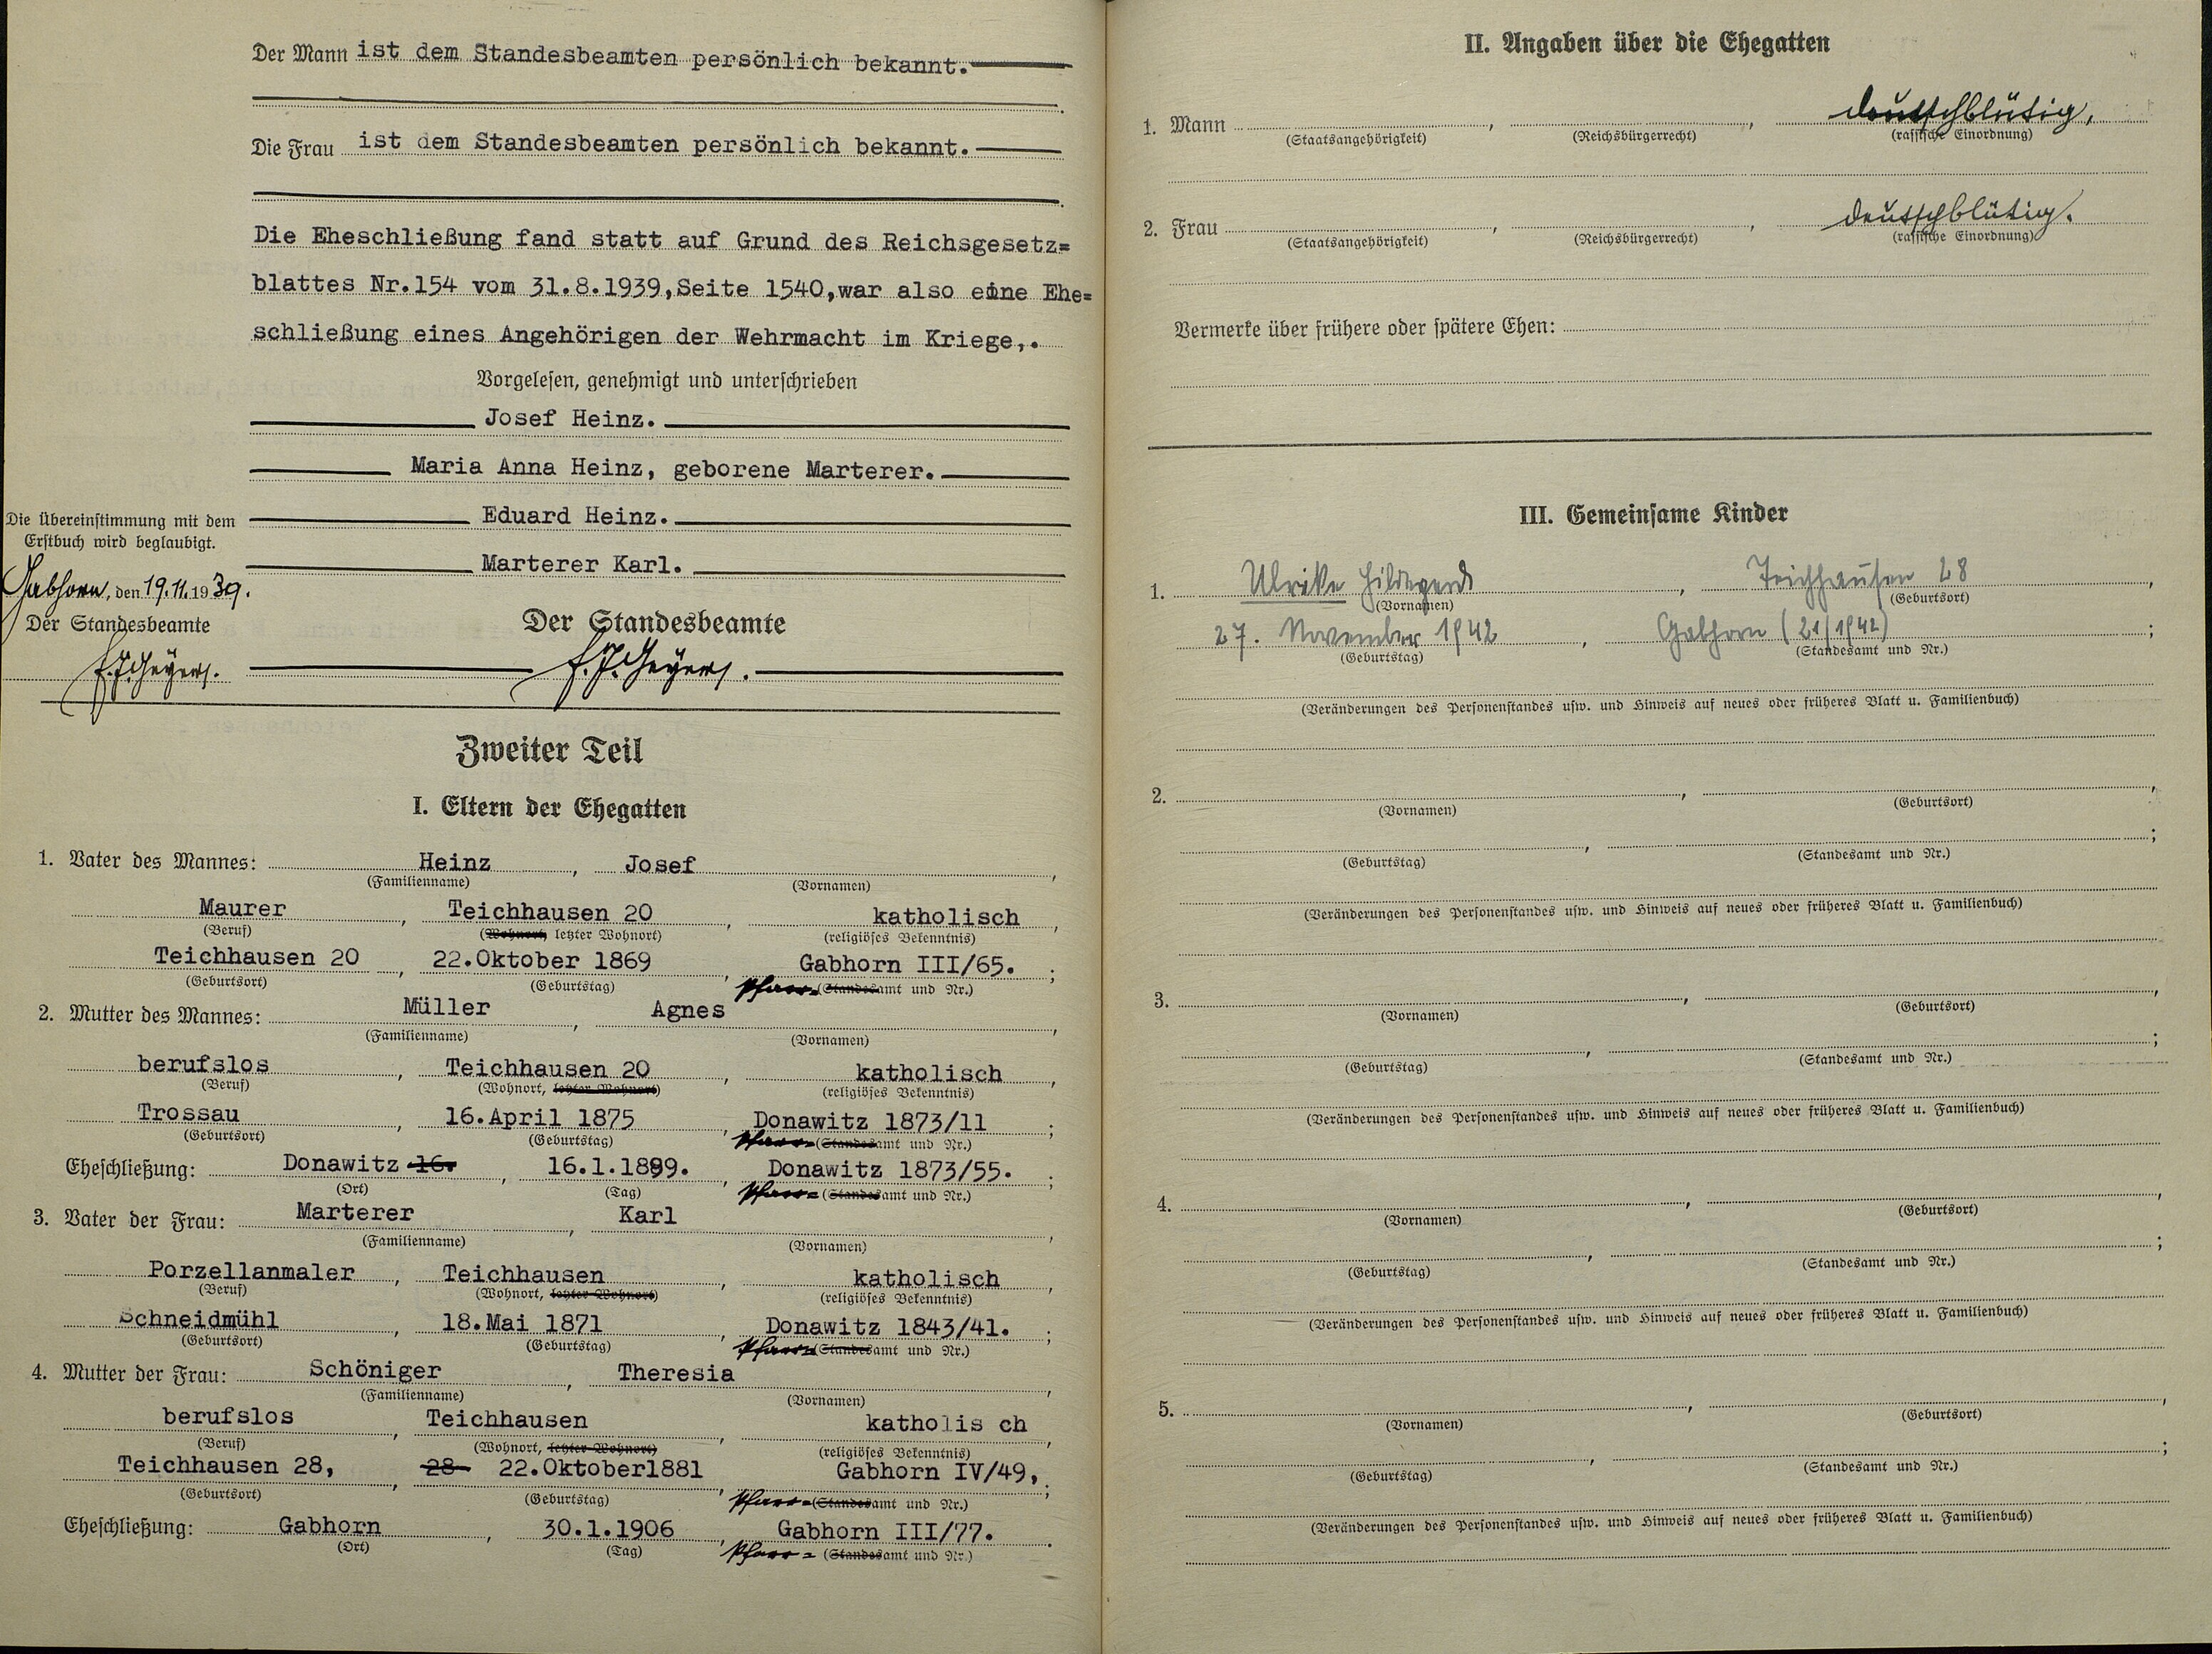 Der Mann ist dem Standesbeamten persönlich bekannt.
Die Frau ist dem Standesbeamten persönlich bekannt.
Die Eheschließung fand statt auf Grund des Reichsgesetz=
blattes Nr.154 vom 31.8.1939,Seite 1540,war also eine Ehe=
schließung eines Angehörigen der Wehrmacht im Kriege,.
Vorgelesen, genehmigt und unterschrieben
Josef Heinz.
Maria Anna Heinz, geborene Marterer.
Eduard Heinz.
Marterer Karl.
Die Übereinstimmung mit dem
Erstbuch wird beglaubigt.
Gabhorn, den 19.11.1939.
Der Standesbeamte
Der Standesbeamte
Zweiter Teil
I. Eltern der Ehegatten
1. Vater des Mannes: Heinz, Josef,
(Familienname) (Vornamen)
Maurer, Teichhausen 20, katholisch,
(Beruf) (Wohnort, letzter Wohnort) (religiöses Bekenntnis)
Teichhausen 20, 22.Oktober 1869, Gabhorn III/65.;
(Geburtsort) (Geburtstag) Pfarr= (Standesamt und Nr.)
2. Mutter des Mannes: Müller, Agnes,
(Familienname) (Vornamen)
berufslos, Teichhausen 20, katholisch,
(Beruf) (Wohnort, letzter Wohnort) (religiöses Bekenntnis)
Trossau, 16.April 1875, Donawitz 1873/11;
(Geburtsort) (Geburtstag) Pfarr= (Standesamt und Nr.)
Eheschließung: Donawitz 16., 16.1.1899., Donawitz 1873/55.;
(Ort) (Tag) Pfarr= (Standesamt und Nr.)
3. Vater der Frau: Marterer, Karl,
(Familienname) (Vornamen)
Porzellanmaler, Teichhausen, katholisch,
(Beruf) (Wohnort, letzter Wohnort) (religiöses Bekenntnis)
Schneidmühl, 18.Mai 1871, Donawitz 1843/41.;
(Geburtsort) (Geburtstag) Pfarr= (Standesamt und Nr.)
4. Mutter der Frau: Schöniger, Theresia,
(Familienname) (Vornamen)
berufslos, Teichhausen, katholis ch,
(Beruf) (Wohnort, letzter Wohnort) (religiöses Bekenntnis)
Teichhausen 28, 28 22.Oktober1881, Gabhorn IV/49,;
(Geburtsort) (Geburtstag) Pfarr= (Standesamt und Nr.)
Eheschließung: Gabhorn, 30.1.1906, Gabhorn III/77.
(Ort) (Tag) Pfarr= (Standesamt und Nr.)
II. Angaben über die Ehegatten
1. Mann , , deutschblütig,
(Staatsangehörigkeit) (Reichsbürgerrecht) (rassische Einordnung)
2. Frau , , deutschblütig.
(Staatsangehörigkeit) (Reichsbürgerrecht) (rassische Einordnung)
Vermerke über frühere oder spätere Ehen:
III. Gemeinsame Kinder
1. Ulrike Hildegard, Teichhausen 28,
(Vornamen) (Geburtsort)
27. November 1942, Gabhorn (21/1942);
(Geburtstag) (Standesamt und Nr.)
(Veränderungen des Personenstandes usw. und Hinweis auf neues oder früheres Blatt u. Familienbuch)
2. , ,
(Vornamen) (Geburtsort)
, ;
(Geburtstag) (Standesamt und Nr.)
(Veränderungen des Personenstandes usw. und Hinweis auf neues oder früheres Blatt u. Familienbuch)
3. , ,
(Vornamen) (Geburtsort)
, ;
(Geburtstag) (Standesamt und Nr.)
(Veränderungen des Personenstandes usw. und Hinweis auf neues oder früheres Blatt u. Familienbuch)
4. , ,
(Vornamen) (Geburtsort)
, ;
(Geburtstag) (Standesamt und Nr.)
(Veränderungen des Personenstandes usw. und Hinweis auf neues oder früheres Blatt u. Familienbuch)
5. , ,
(Vornamen) (Geburtsort)
, ;
(Geburtstag) (Standesamt und Nr.)
(Veränderungen des Personenstandes usw. und Hinweis auf neues oder früheres Blatt u. Familienbuch)